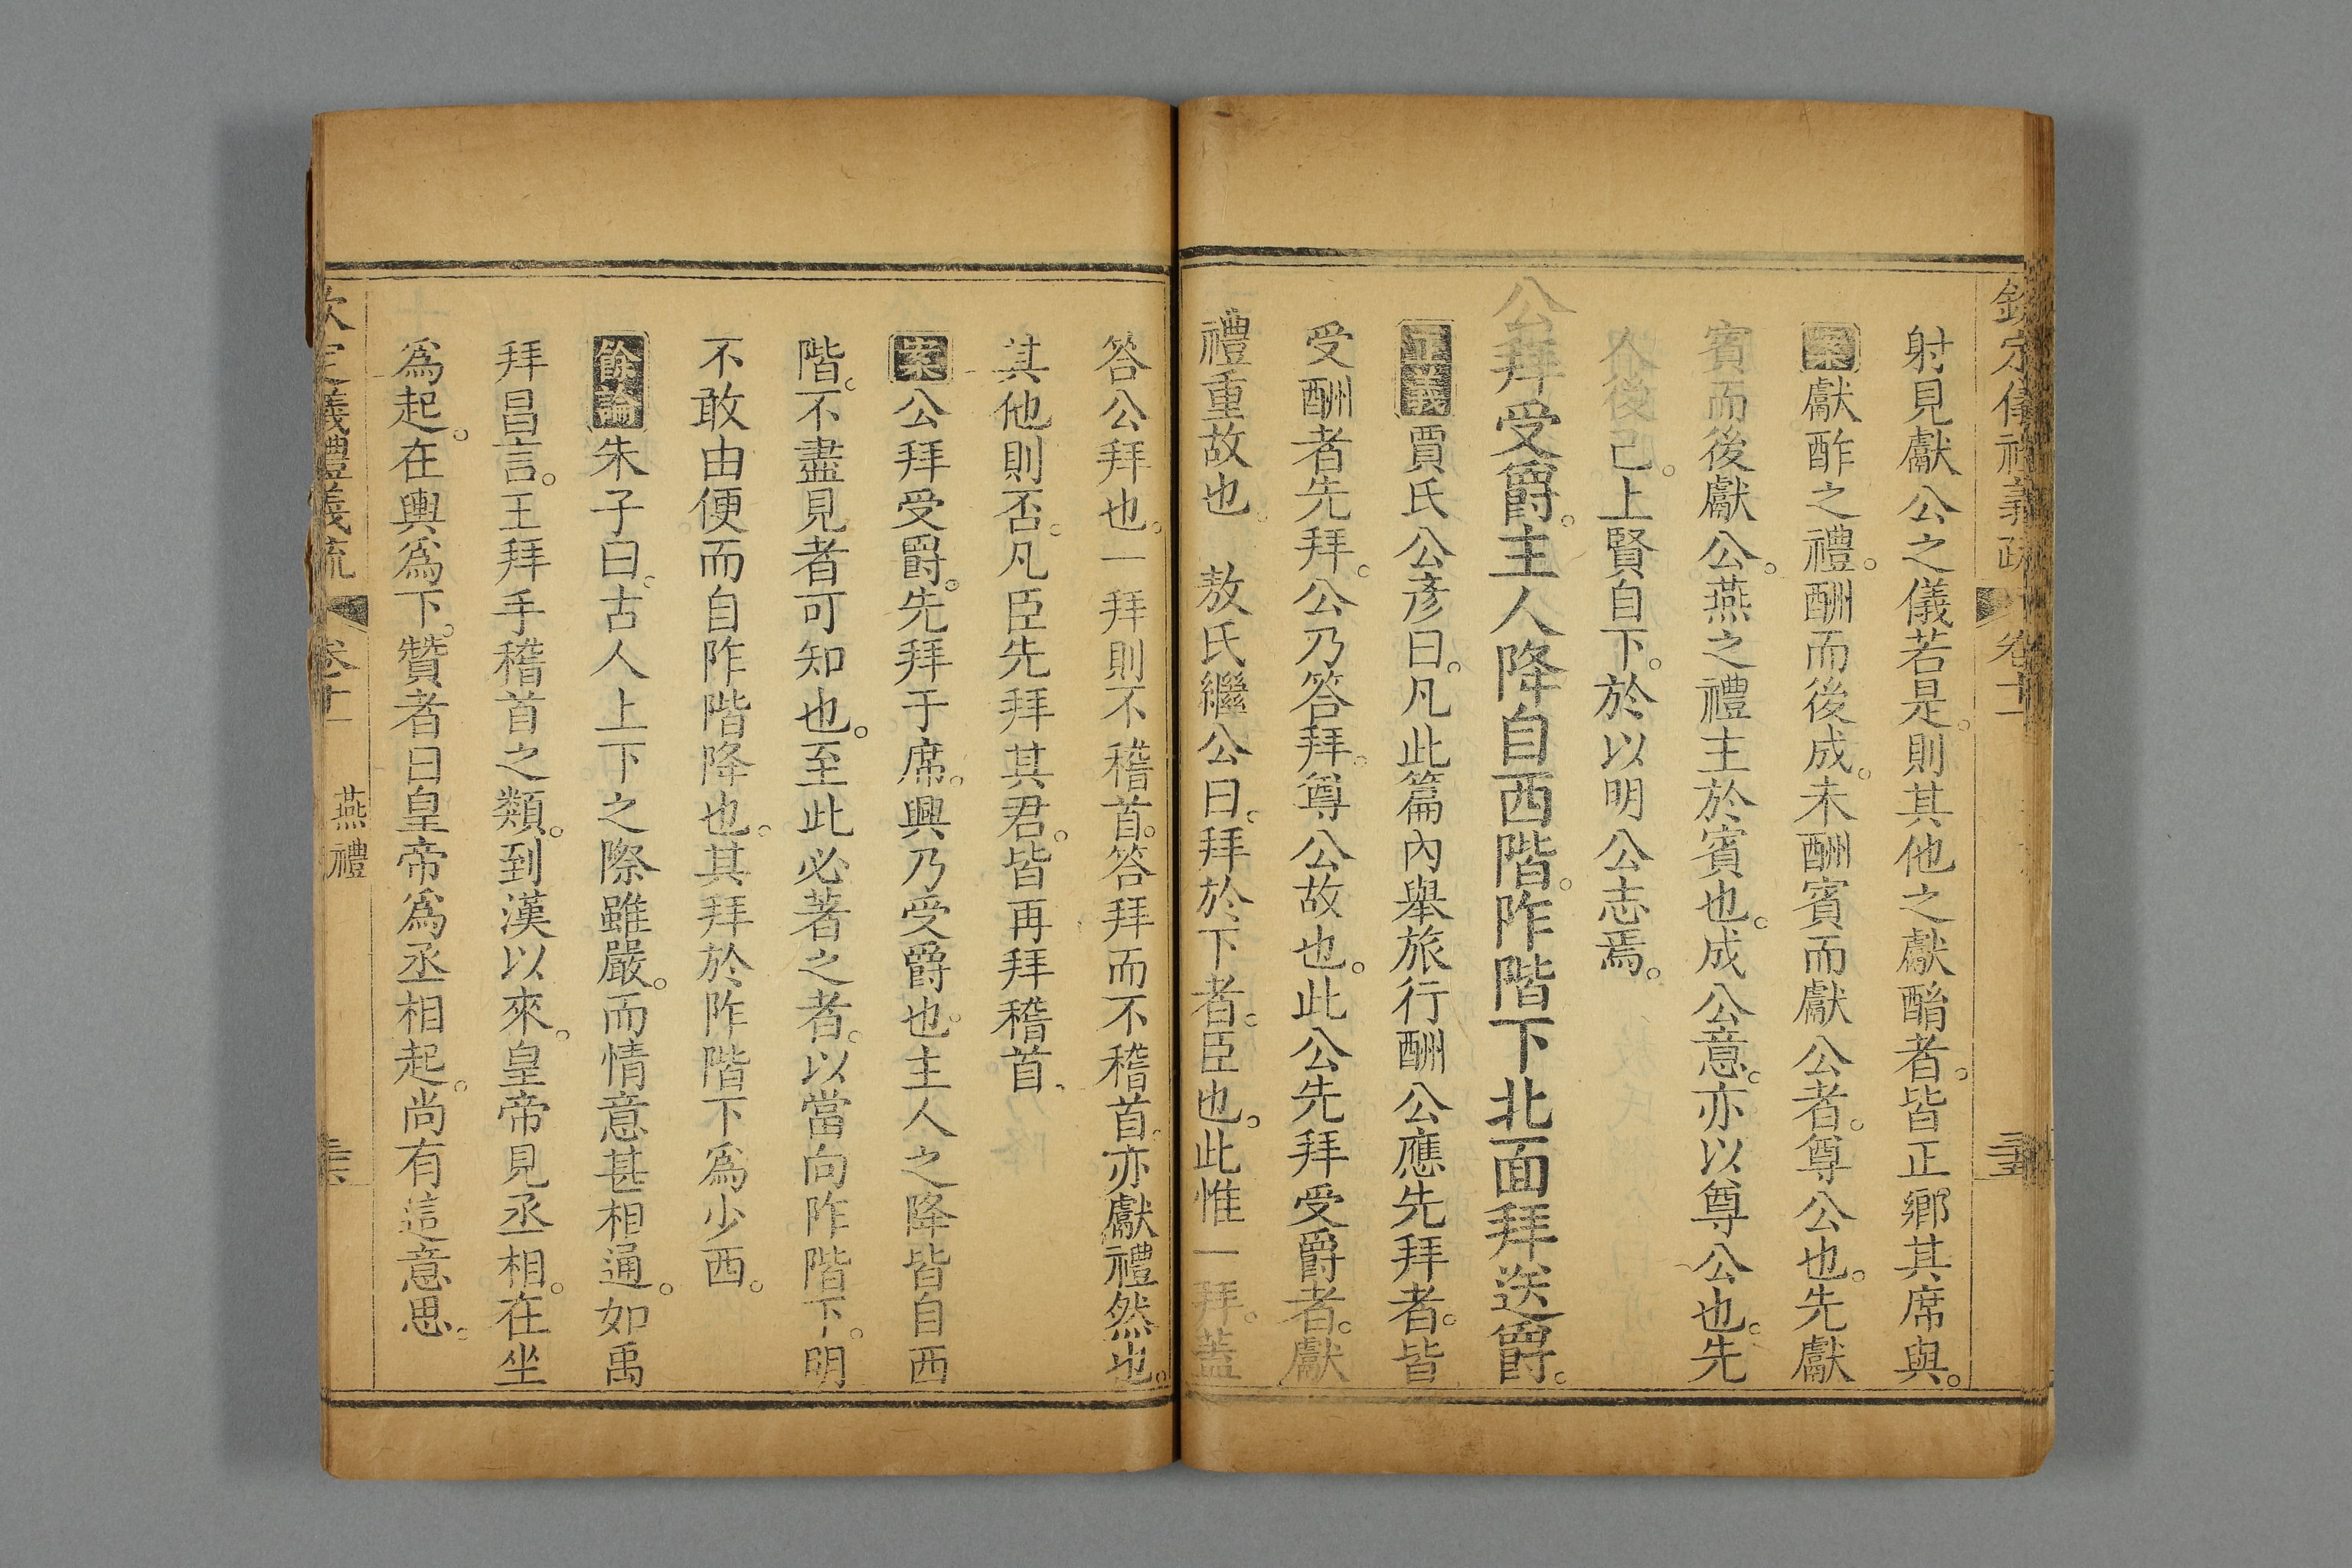 欽定儀禮義疏 卷十二 三五
射見獻公之儀若是。則其他之獻酳者。皆正鄉其席與。
案獻酢之禮。酬而後成。未酬賓而獻公者。尊公也。先獻
賓而後獻公。燕之禮主於賓也。成公意。亦以尊公也。先
人後己。上賢自下。於以明公志焉。
公拜受爵。主人降自西階。阼階下北面拜送爵。
正義賈氏公彥曰。凡此篇內舉旅行酬公應先拜者。皆
受酬者先拜。公乃答拜。尊公故也。此公先拜受爵者。獻
禮重故也 敖氏繼公曰。拜於下者。臣也。此惟一拜。蓋
答公拜也。一拜則不稽首。答拜而不稽首。亦獻禮然也。
其他則否。凡臣先拜其君。皆再拜稽首、
案公拜受爵。先拜于席。興乃受爵也。主人之降皆自西
階。不盡見者可知也。至此必著之者。以當向阼階下。明
不敢由便而自阼階降也。其拜於阼階下爲少西。
餘論朱子曰。古人上下之際雖嚴。而情意甚相通。如禹
拜昌言。王拜手稽首之類。到漢以來。皇帝見丞相。在坐
爲起。在輿爲下。贊者曰皇帝爲丞相起。尚有這意思。
欽定儀禮義疏 卷十二 燕禮